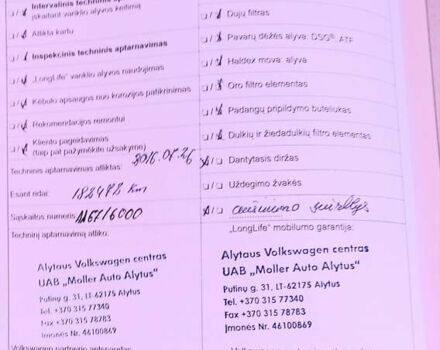 Intervalinis techninis aptarnavimas
įskaitant variklio alyvos keitimą
Atlikta kartu
Inspekcinis techninis aptarnavimas
„LongLife“ variklio alyvos naudojimas
Kėbulo apsaugos nuo korozijos patikrinimas
Rekomendacijos remontui
Kliento pageidavimas
(taip pat pažymėkite užsakyme)
Techninis aptarnavimas atliktas: 2016.07.26
Esant ridai: 182478 km
Sąskaitos numeris:
Techninį aptarnavimą atliko:
Alytaus Volkswagen centras
UAB „Moller Auto Alytus”
Putinų g. 31, LT-62175 Alytus
Tel. +370 315 77340
Fax +370 315 78783
Įmonės Nr. 46100869
Dujų filtras
Pavarų dėžės alyva: DSG® ATF
Haldex mova: alyva
Oro filtro elementas
Padangų pripildymo buteliukas
Dulkių ir žiedadulkių filtro elementas
Dantytasis diržas
Uždegimo žvakės
„LongLife“ mobilumo garantija:
Alytaus Volkswagen centras
UAB „Moller Auto Alytus”
Putinų g. 31, LT-62175 Alytus
Tel. +370 315 77340
Fax +370 315 78783
Įmonės Nr. 46100869